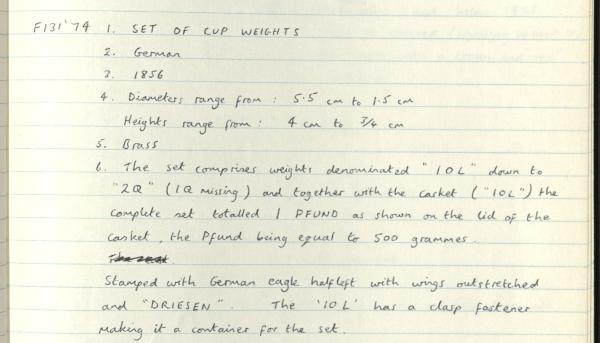 F131'74 1. SET OF CUP WEIGHTS
2. German
3. 1856
4. Diameters range from : 5.5 cm to 1.5 cm
Heights range from : 4 cm to 3/4 cm
5. Brass
6. The set comprises weights denominated "10L" down to
"2Q" (1Q missing) and together with the casket ("10L") the
complete set totalled 1 PFUND as shown on the lid of the
casket, the Pfund being equal to 500 grammes.
Stamped with German eagle halfleft with wings outstretched
and "DRIESEN". The '10L' has a clasp fastener
making it a container for the set.